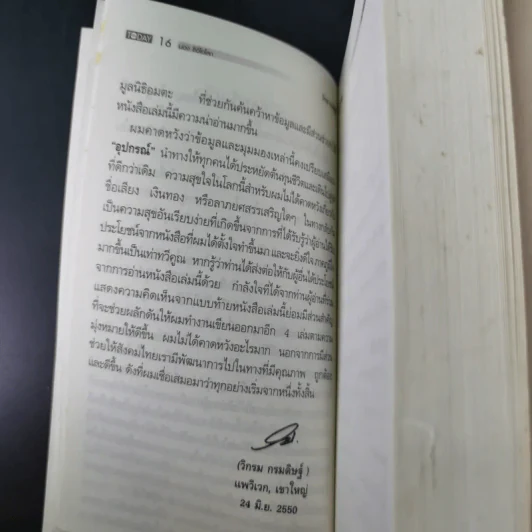 TODAY 16
มูลนิธิอมตะ ที่ช่วยกันค้นคว้าหาข้อมูลและมีส่วน
หนังสือเล่มนี้มีความน่าอ่านมากขึ้น
ผมคาดหวังว่าข้อมูลและมุมมองเหล่านี้คงเปรียบเสมือน
"อุปกรณ์" นำทางให้ทุกคนได้ประหยัดต้นทุนชีวิตและเดินไป
ที่ดีกว่าเดิม ความสุขใจในโลกนี้สำหรับผมไม่ได้คาดหวัง
ชื่อเสียง เงินทอง หรือลาภยศสรรเสริญใดๆ ในทาง
เป็นความสุขอันเรียบง่ายที่เกิดขึ้นจากการที่ได้รับรู้ว่าผู้อ่านได้
ประโยชน์จากหนังสือที่ผมได้ตั้งใจทำขึ้นมา และจะยิ่งดีใจ
มากขึ้นเป็นเท่าทวีคูณ หากรู้ว่าท่านได้ส่งต่อให้กับผู้อื่นได้
จากการอ่านหนังสือเล่มนี้ด้วย กำลังใจที่ได้จากท่านผู้อ่านที่
แสดงความคิดเห็นจากแบบท้ายหนังสือเล่มนี้ย่อมมีส่วนสำคัญ
ที่จะช่วยผลักดันให้ผมทำงานเขียนออกมาอีก 4 เล่มตามความ
มุ่งหมายให้ดีขึ้น ผมไม่ได้คาดหวังอะไรมาก นอกจากการมีส่วน
ช่วยให้สังคมไทยเรามีพัฒนาการไปในทางที่มีคุณภาพ ถูกต้อง
และดีขึ้น ดังที่ผมเชื่อเสมอมาว่าทุกอย่างเริ่มจากหนึ่งทั้งสิ้น
(วิกรม กรมดิษฐ์)
แพวิเวก, เขาใหญ่
24 มิ.ย. 2550